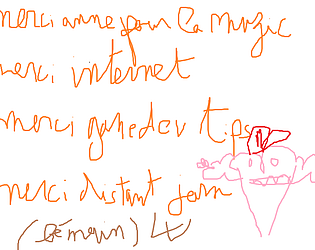 merci anne pour la muzic
merci internet
merci gamedev tips
merci distant jam
(Démoin)